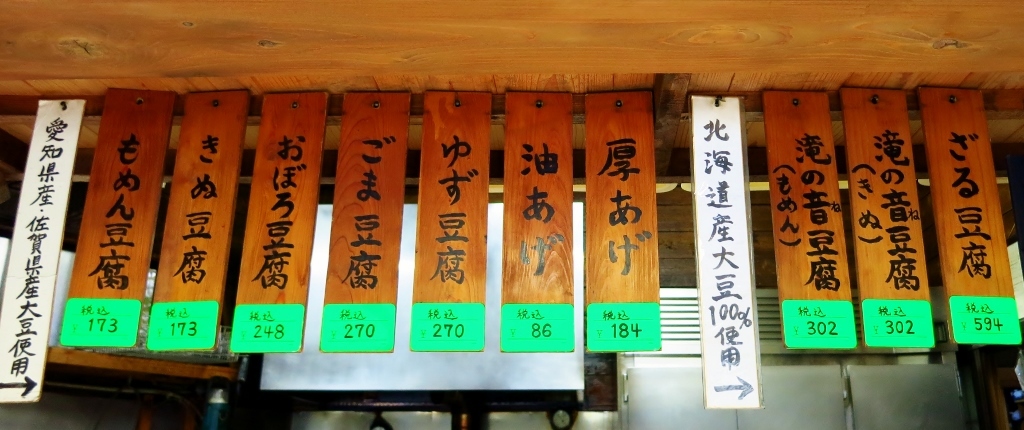 愛知県産・佐賀県産大豆使用→
もめん豆腐
税込
¥173
きぬ豆腐
税込
¥173
おぼろ豆腐
税込
¥248
ごま豆腐
税込
¥270
ゆず豆腐
税込
¥270
油あげ
税込
¥86
厚あげ
税込
¥184
北海道産大豆100%使用→
滝の音豆腐
ね
(もめん)
税込
¥302
滝の音豆腐
ね
(きぬ)
税込
¥302
ざる豆腐
税込
¥594